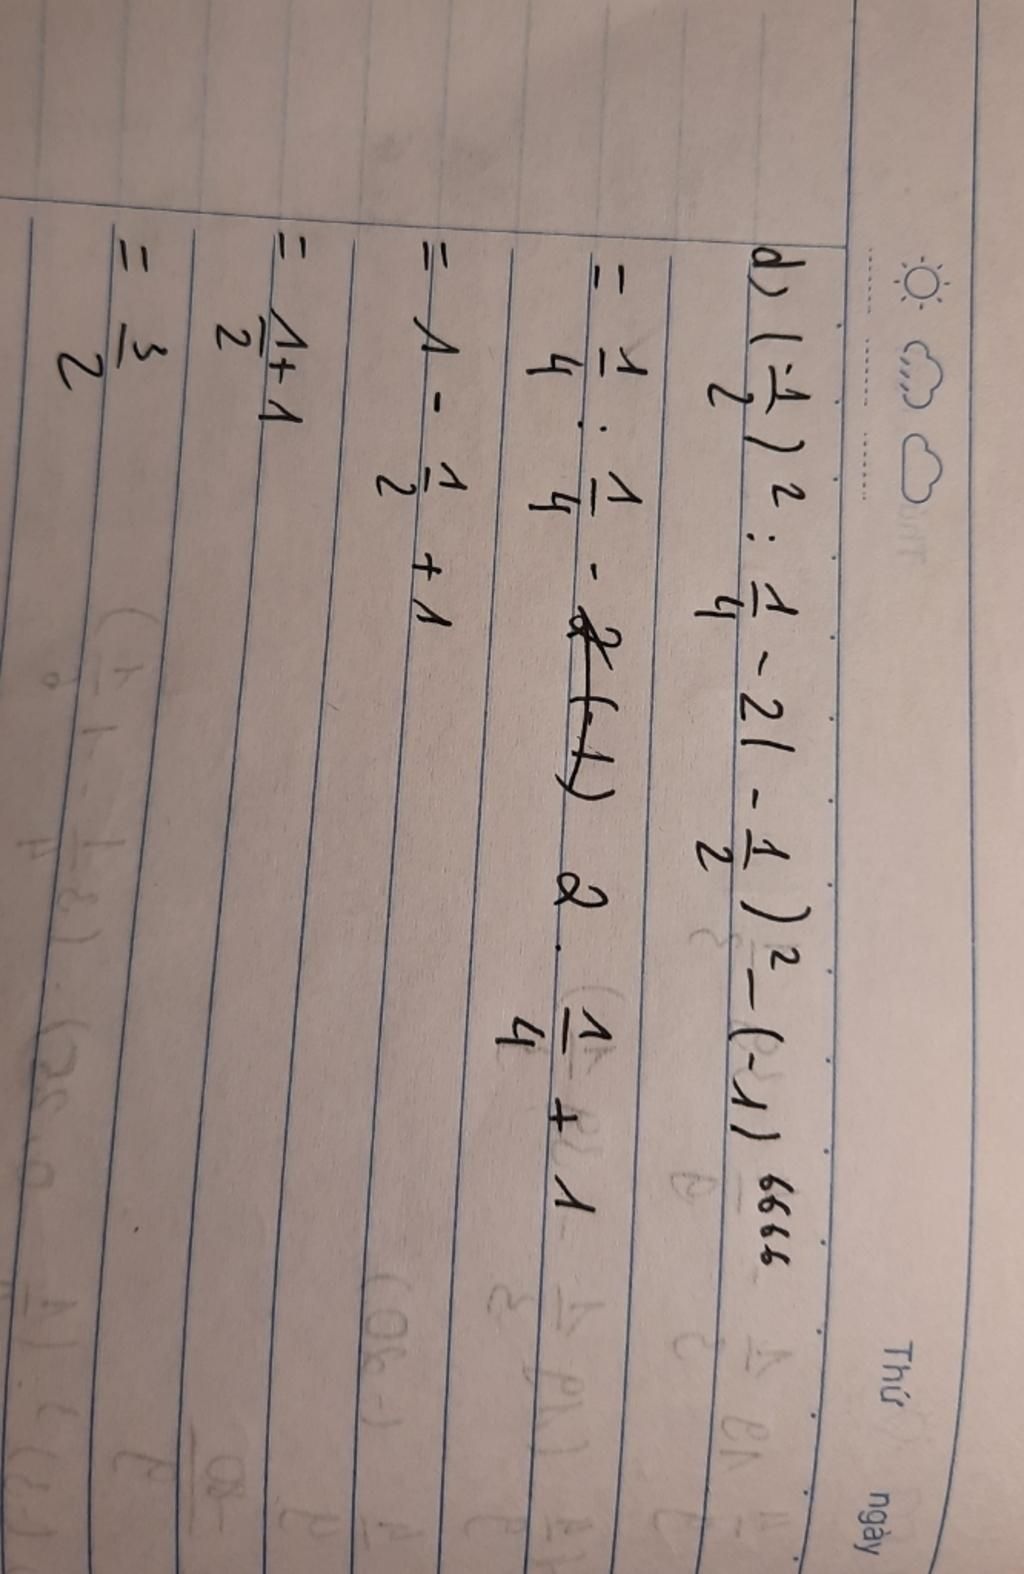 Thứ ngày
d) (-1/2)² : 1/4 - 2(-1/2)² - (-1)⁶⁶⁶⁶
= 1/4 : 1/4 - 2 . 1/4 + 1
= 1 - 1/2 + 1
= 1/2 + 1
= 3/2